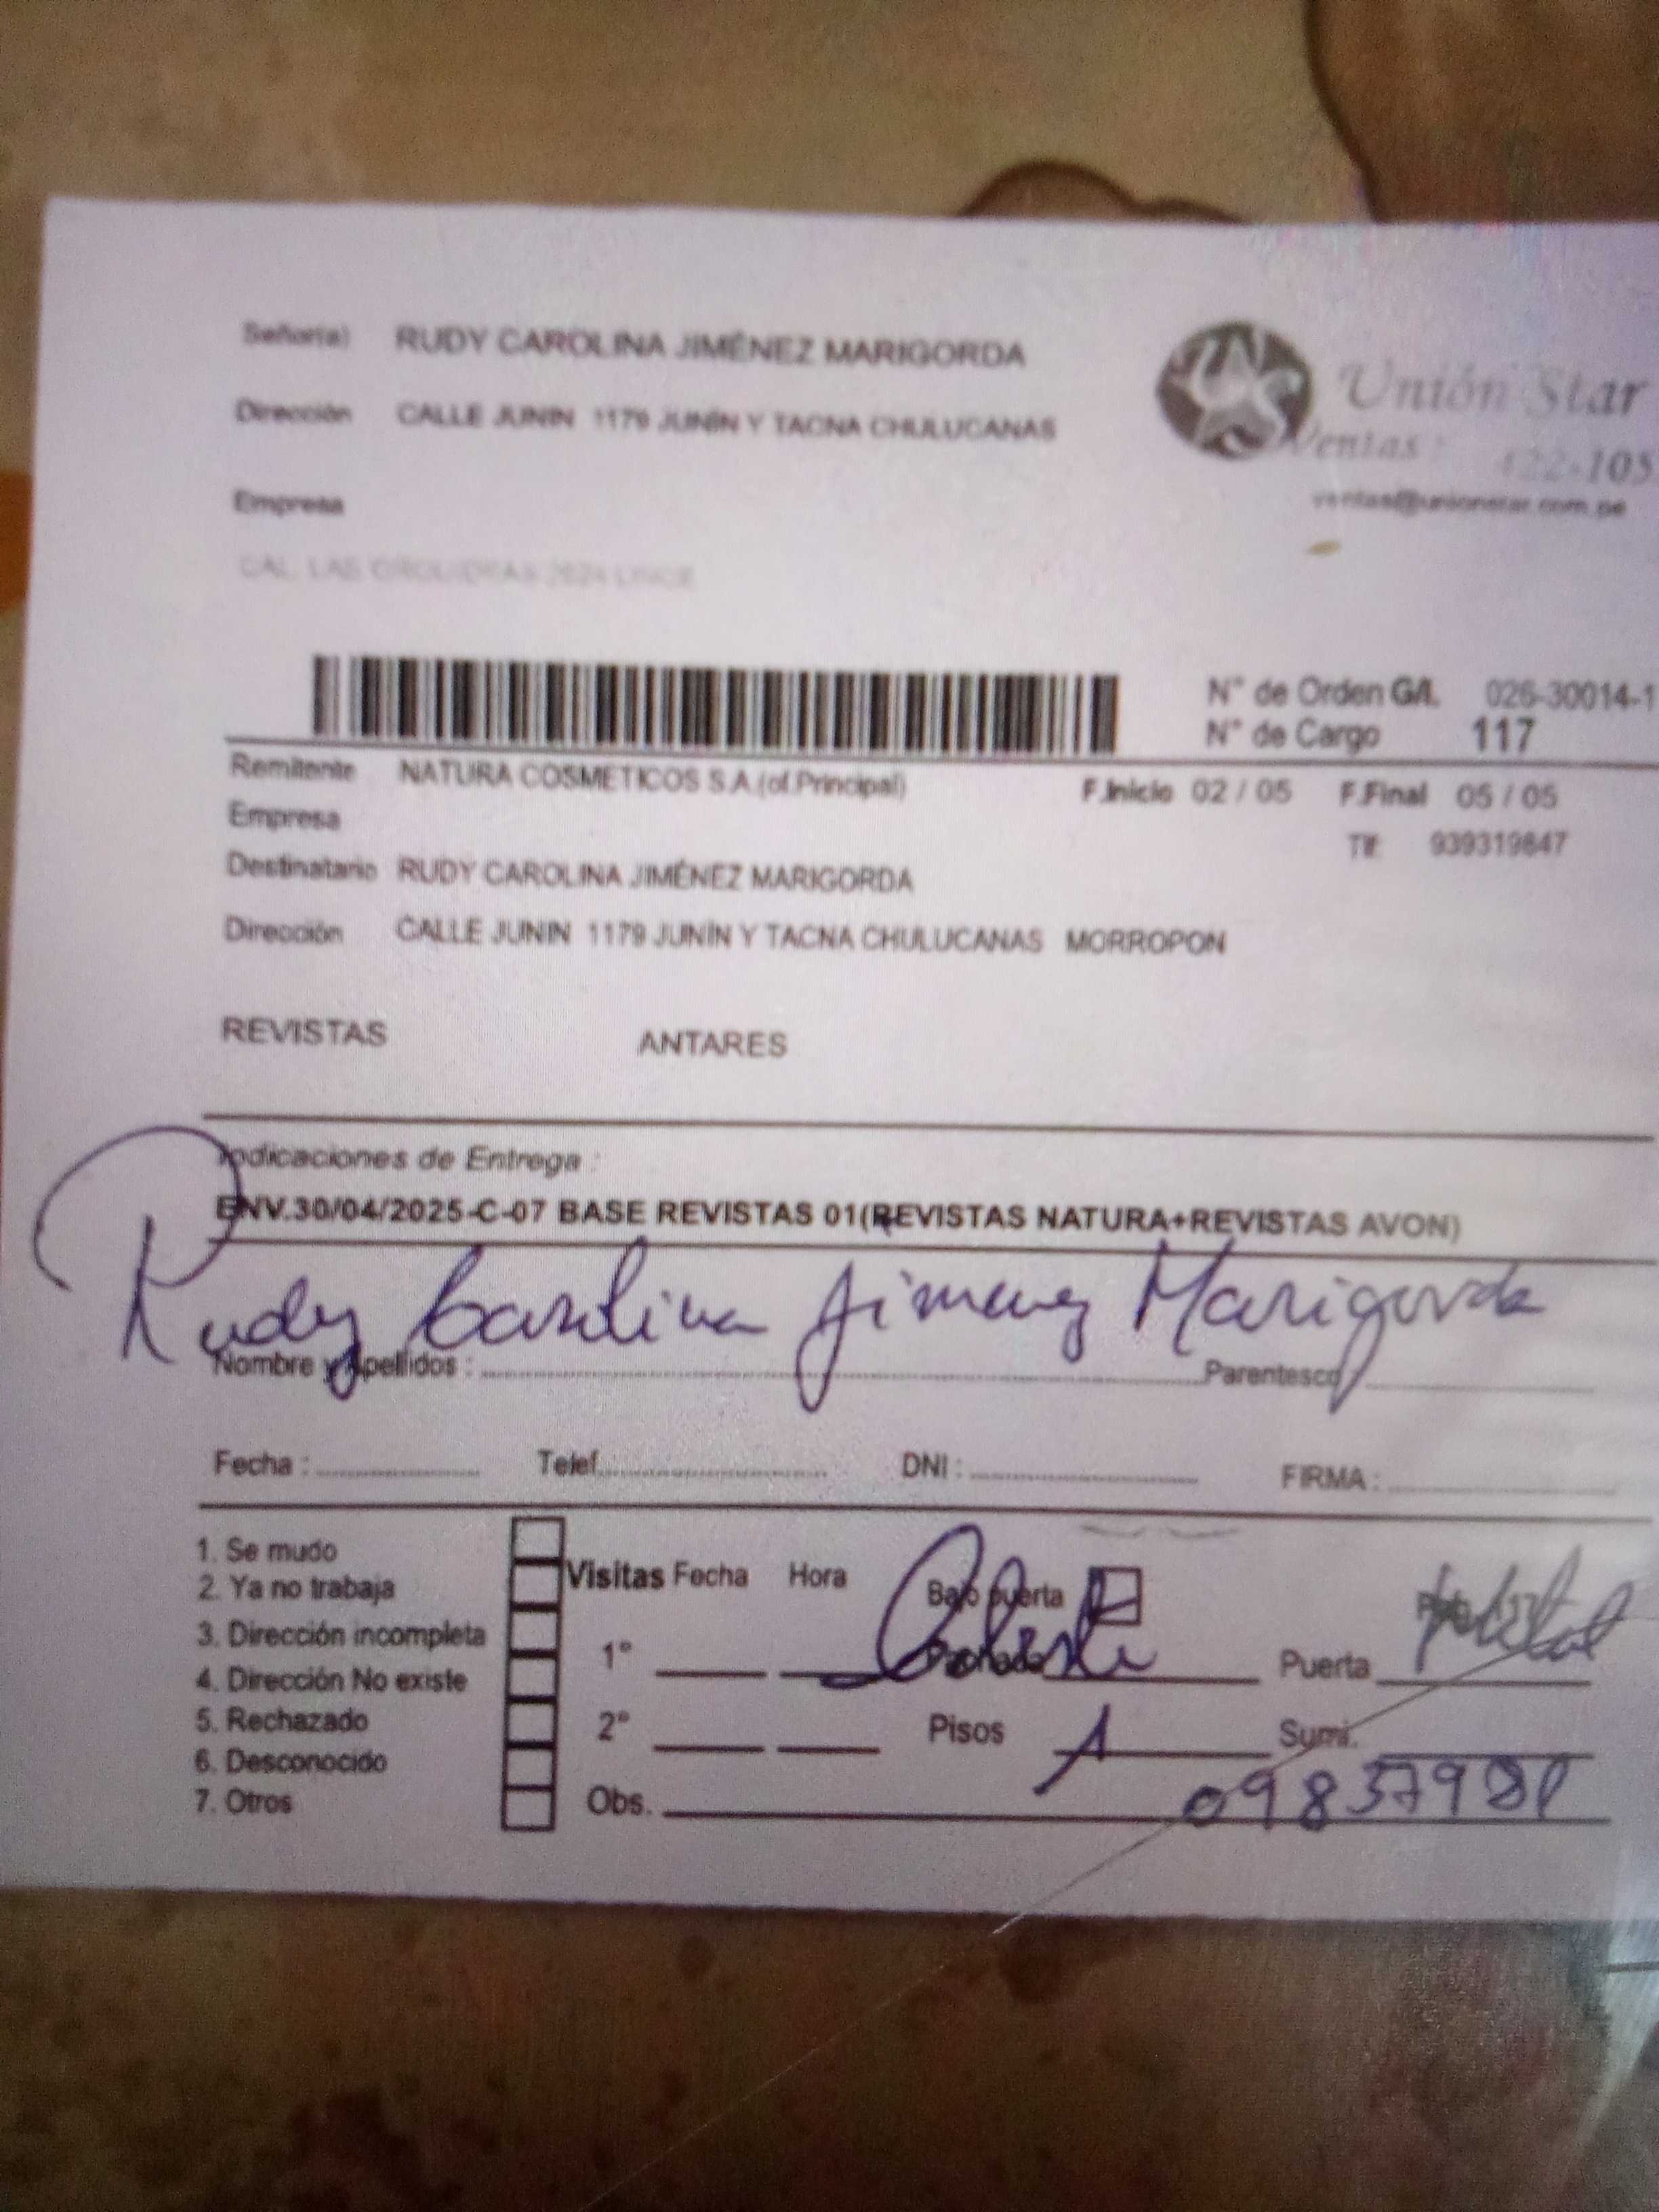 Señor(a) RUDY CAROLINA JIMÉNEZ MARIGORDA
Dirección CALLE JUNIN 1179 JUNÍN Y TACNA CHULUCANAS
Unión Star
Ventas: 422-105
ventas@unionstar.com.pe
Empresa
CAL. LAS ORQUIDEAS 2624 LINCE
N° de Orden G/I. 026-30014-1
N° de Cargo 117
Remitente NATURA COSMETICOS S.A.(of.Principal) F.Inicio 02 / 05 F.Final 05 / 05
Empresa Tlf: 939319847
Destinatario RUDY CAROLINA JIMÉNEZ MARIGORDA
Dirección CALLE JUNIN 1179 JUNÍN Y TACNA CHULUCANAS MORROPON
REVISTAS ANTARES
Indicaciones de Entrega :
ENV.30/04/2025-C-07 BASE REVISTAS 01(REVISTAS NATURA+REVISTAS AVON)
Rudy Carolina Jimenez Marigorda
Nombre y Apellidos : Parentesco
Fecha : Telef. DNI : FIRMA :
1. Se mudo
2. Ya no trabaja
3. Dirección incompleta
4. Dirección No existe
5. Rechazado
6. Desconocido
7. Otros
Visitas Fecha Hora Bajo puerta
1° Celeste Puerta
2° Pisos 1 Sumi.
Obs. 09837981